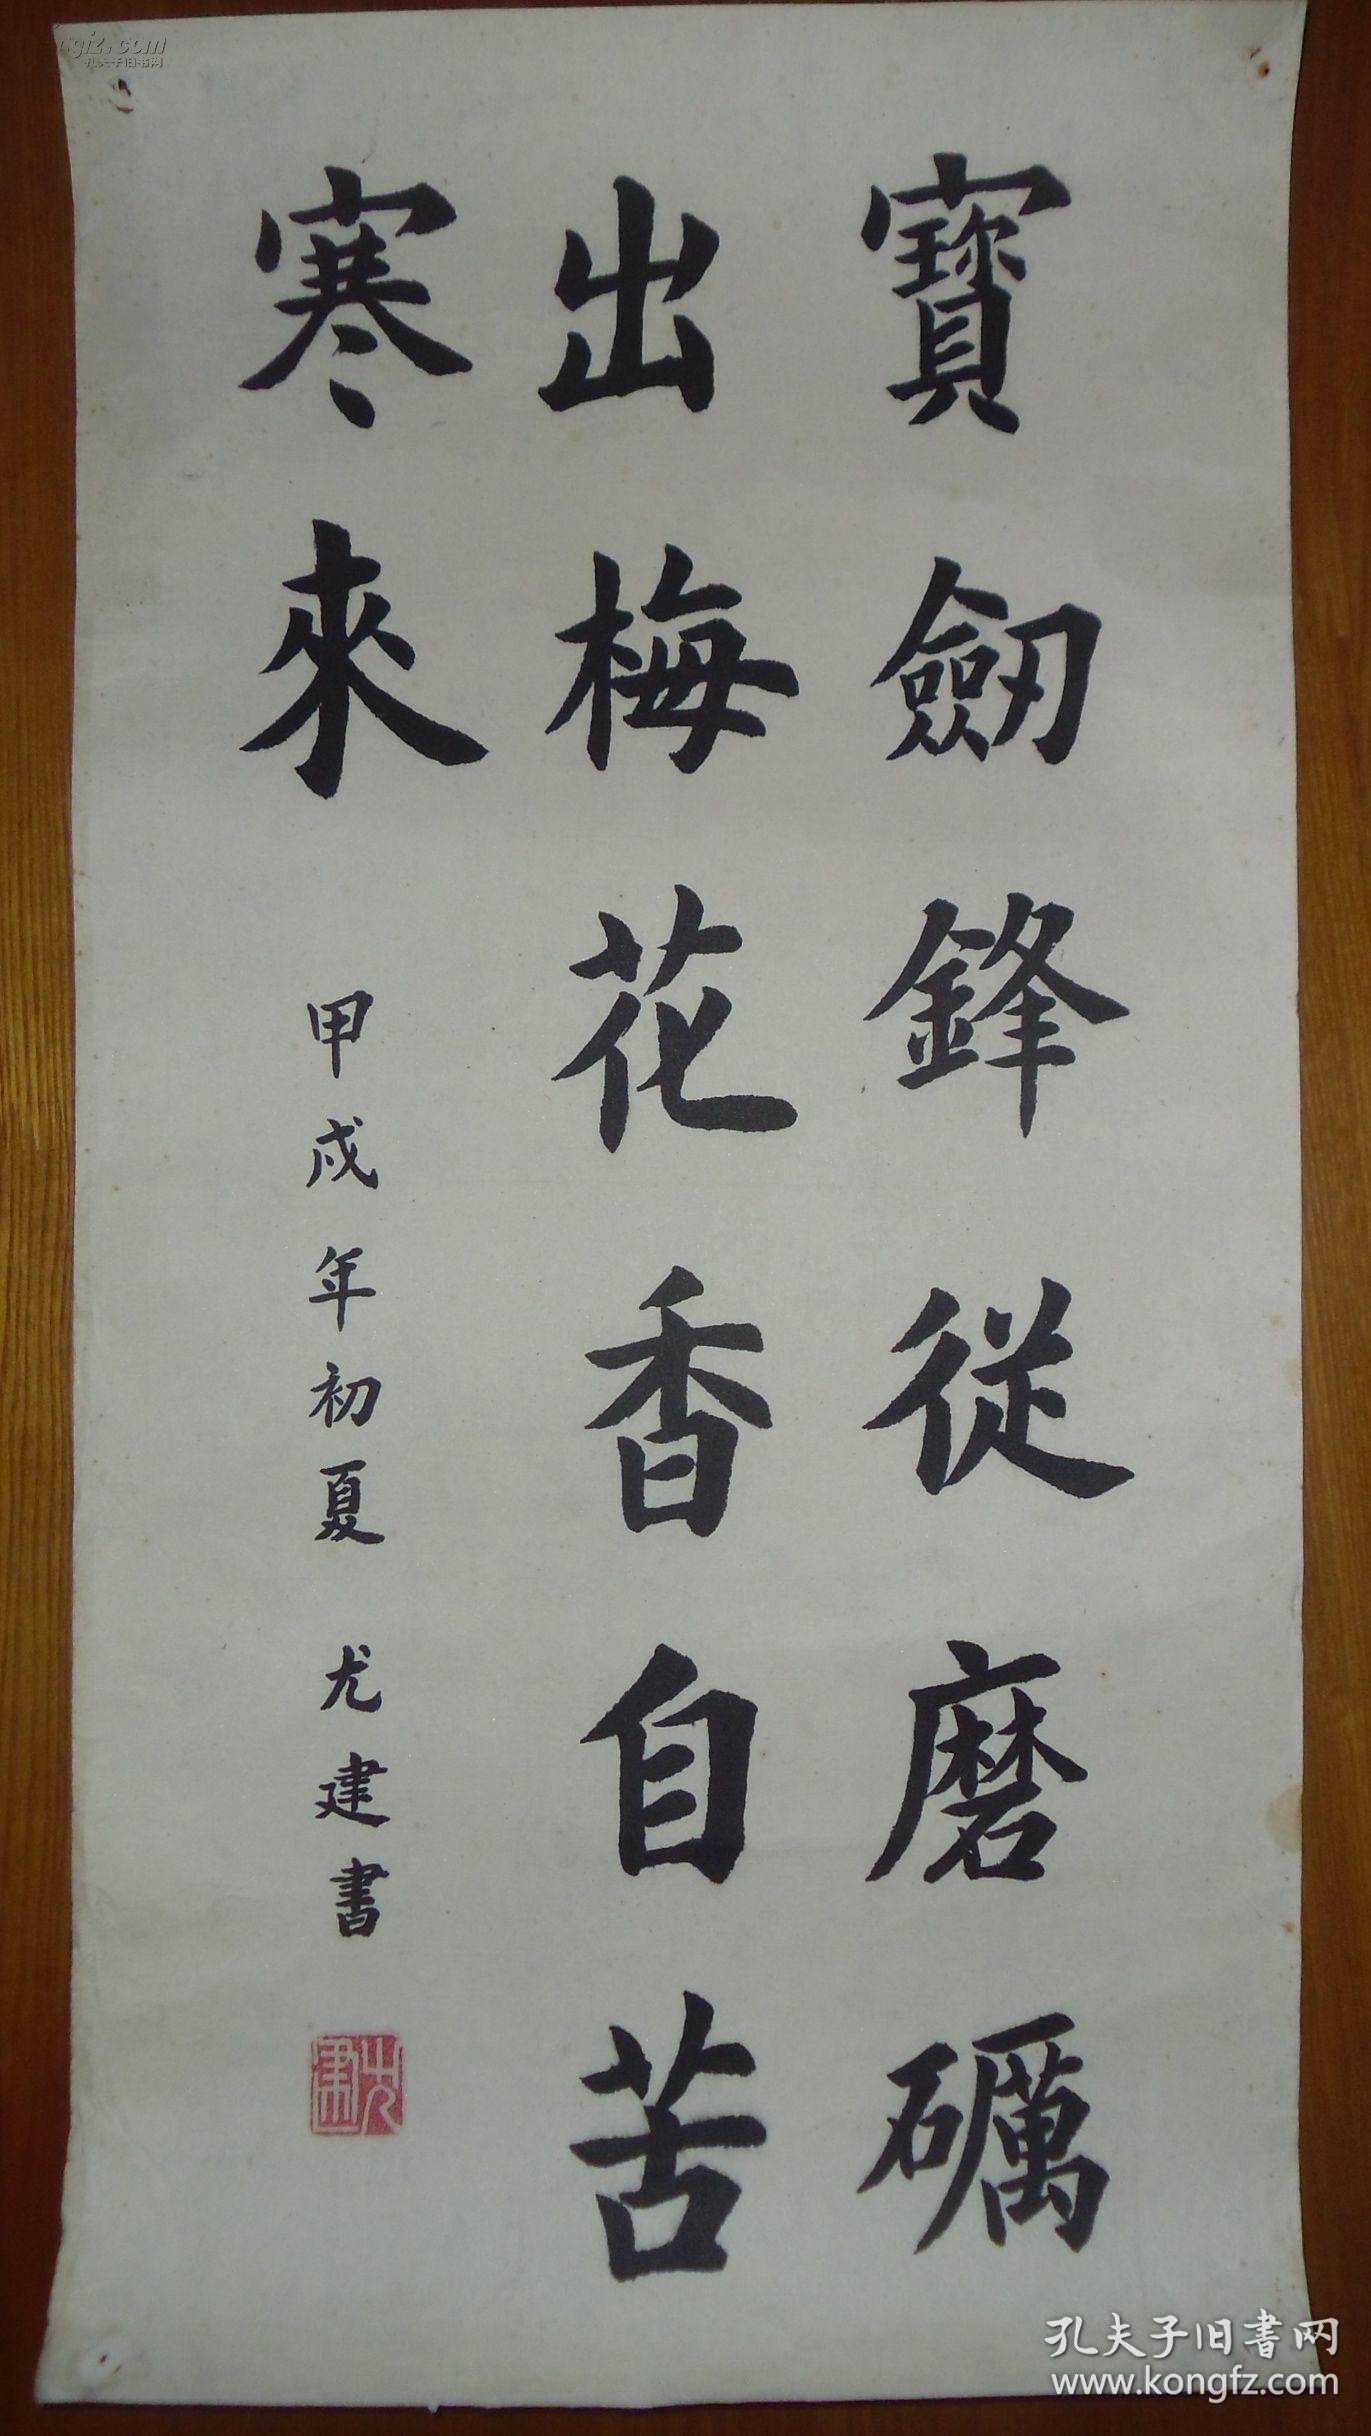 寶劒鋒從磨礪
出梅花香自苦
寒來
甲戌年初夏 尤建書
尤建
孔夫子旧书网
www.kongfz.com
孔夫子旧书网